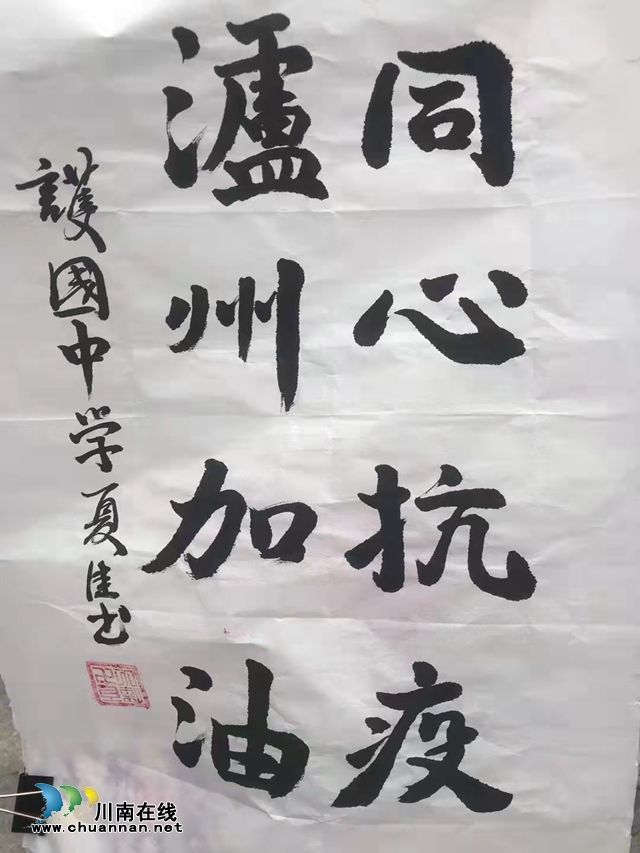 同心抗疫
瀘州加油
護國中学夏佳书
川南在线
www.chuannan.net